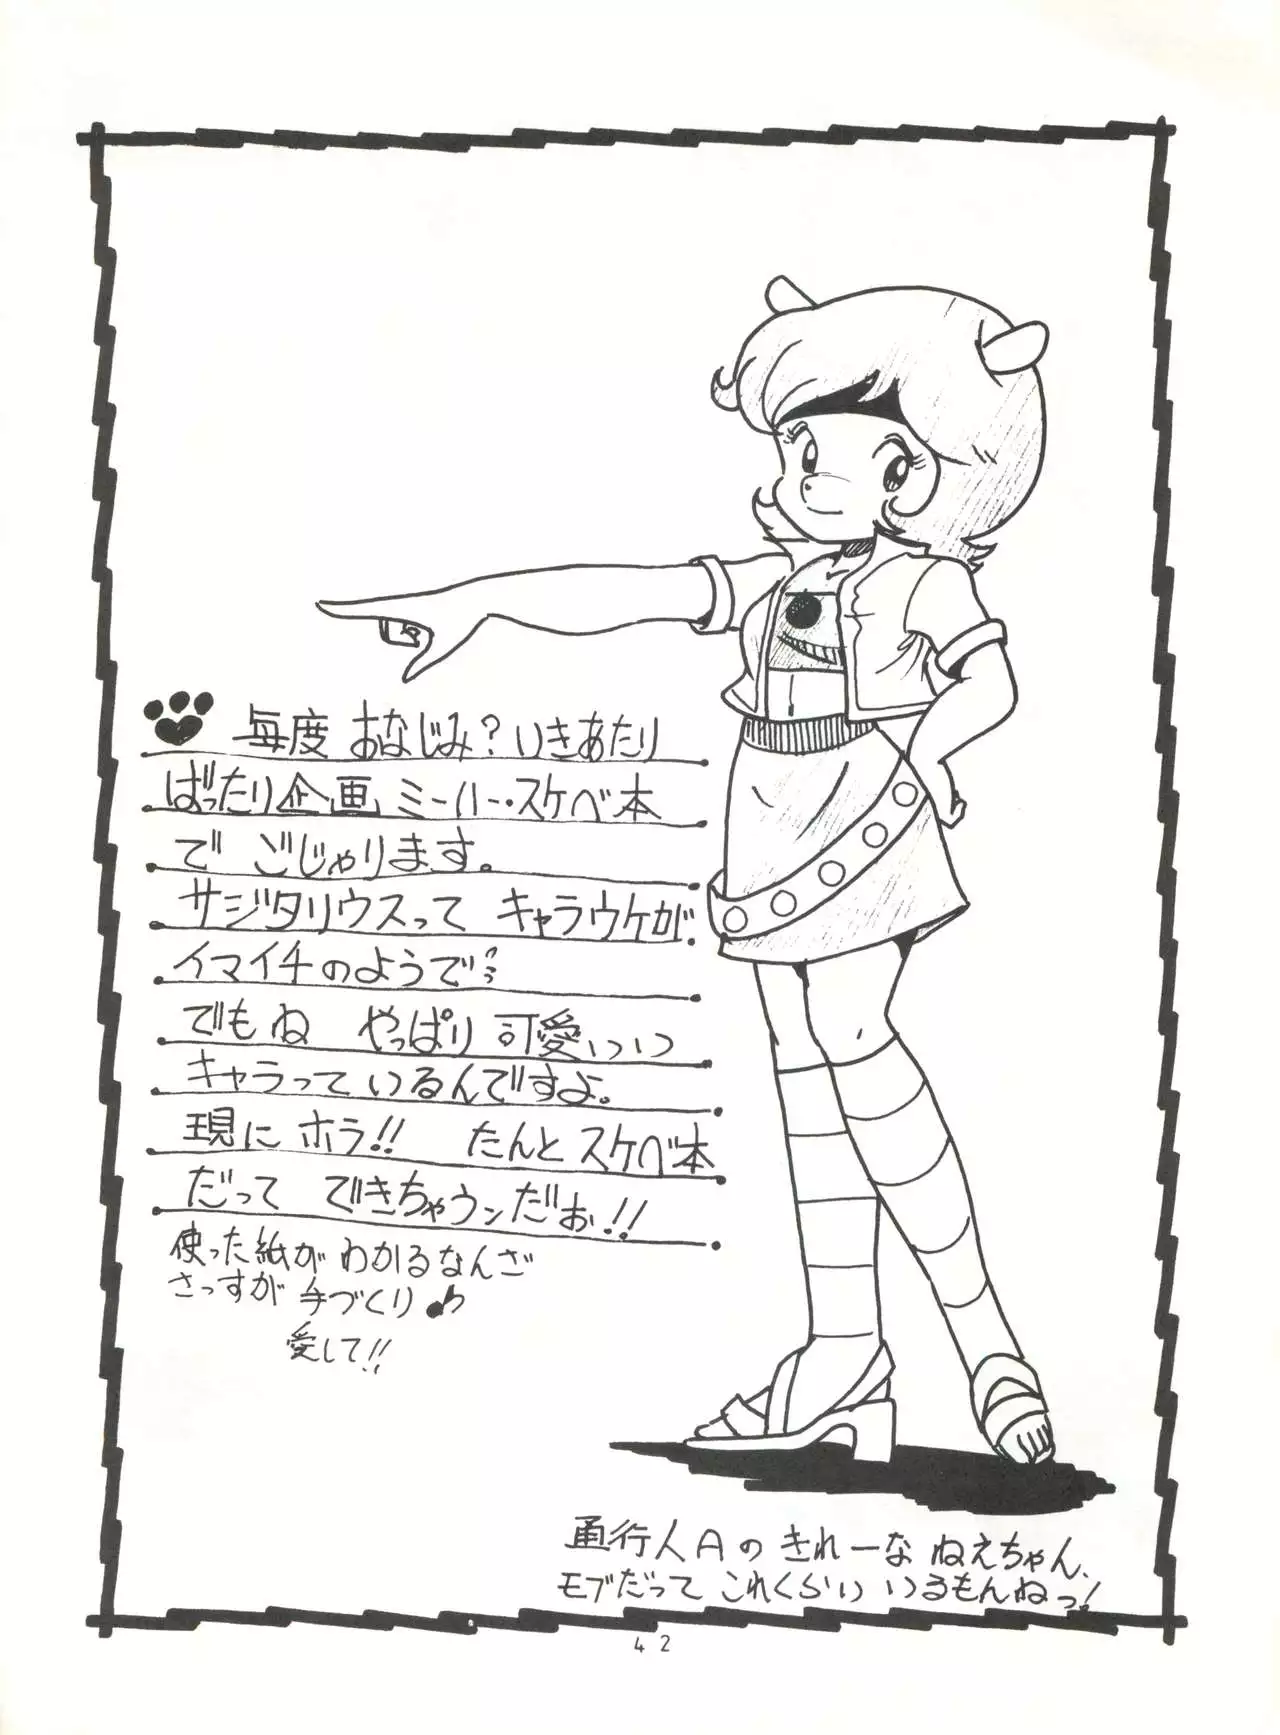 毎度 おなじみ?いきあたり
ばったり企画 ミーハー・スケベ本
で ごじゃります。
サジタリウスって キャラウケが
イマイチのようで…
でもね やっぱり可愛いいつ
キャラっているんですよ。
現に ホラ!! たんとスケベ本
だって できちゃウンだぉ!!
使った紙が わかるなんざ
さっすが 手づくり♪
愛して!!
通行人Aの きれーな ねえちゃん、
モブだって これくらい いるもんねっ!
42